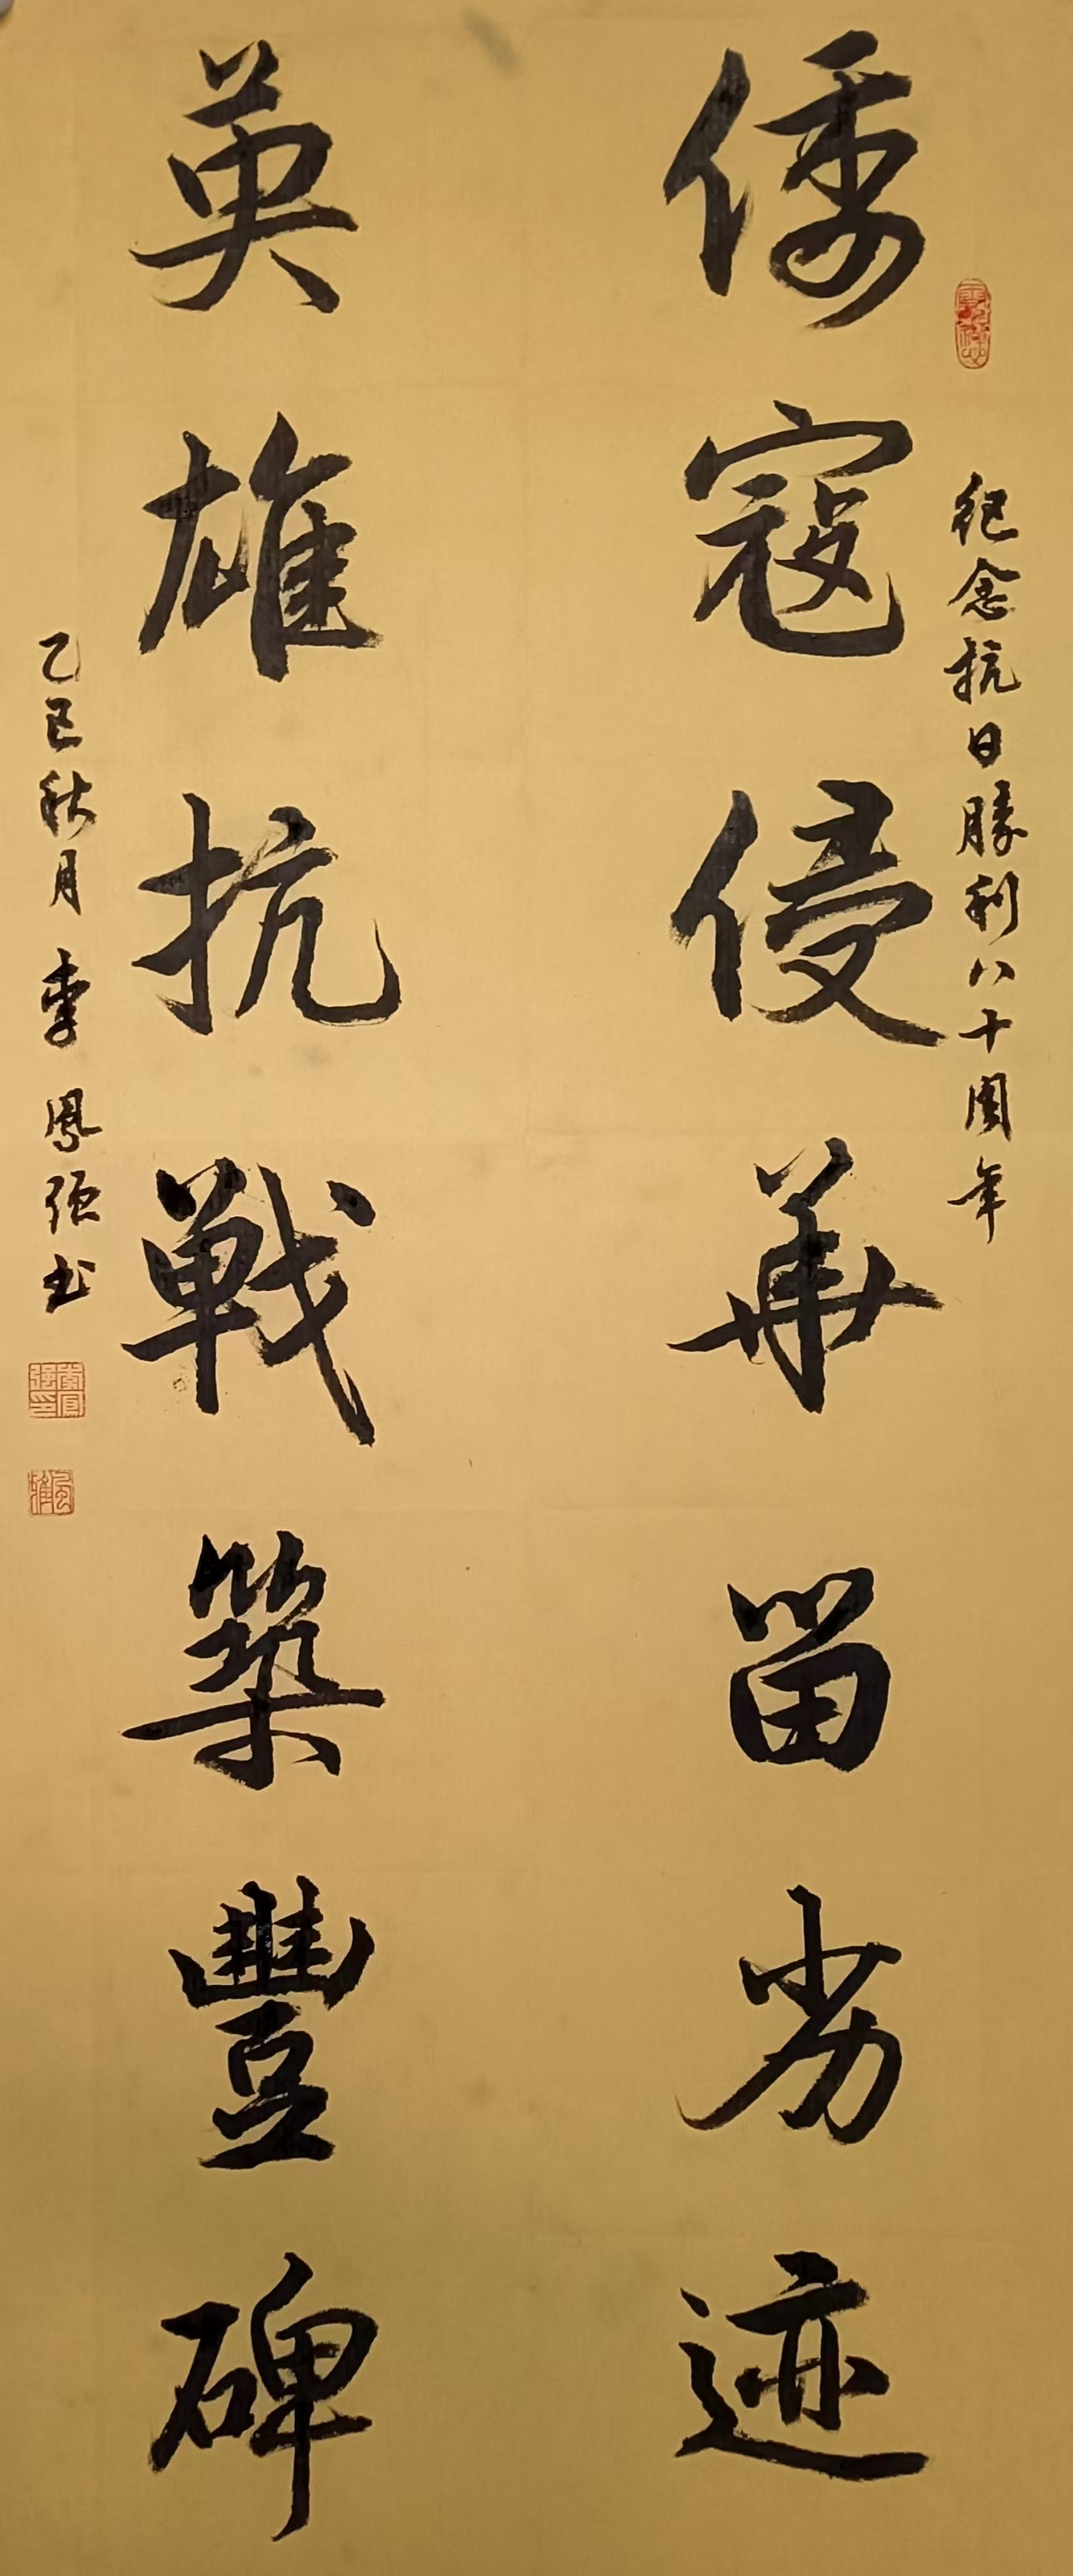 紀念抗日勝利八十周年
倭寇侵華留劣迹
英雄抗戦築豐碑
乙巳秋月李鳳强书